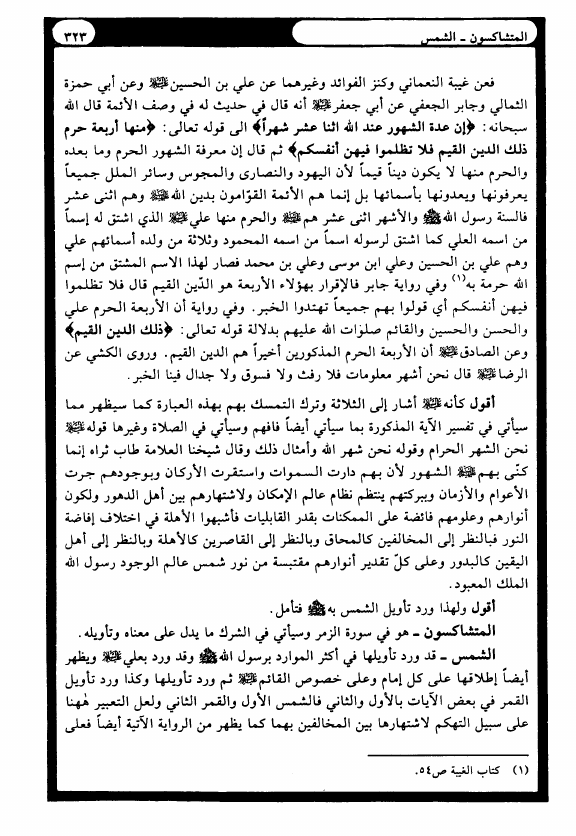 المتشاكسون - الشمس
٣٢٣
فعن غيبة النعماني وكنز الفوائد وغيرهما عن علي بن الحسين ﷺ وعن أبي حمزة
الثمالي وجابر الجعفي عن أبي جعفر ﷺ أنه قال في حديث له في وصف الأئمة قال الله
سبحانه: ﴿إن عدة الشهور عند الله اثنا عشر شهراً﴾ الى قوله تعالى: ﴿منها أربعة حرم
ذلك الدين القيم فلا تظلموا فيهن أنفسكم﴾ ثم قال إن معرفة الشهور الحرم وما بعده
والحرم منها لا يكون ديناً قيماً لأن اليهود والنصارى والمجوس وسائر الملل جميعاً
يعرفونها ويعدونها بأسمائها بل إنما هم الأئمة القوّامون بدين الله ﷺ وهم اثنى عشر
فالسنة رسول الله ﷺ والأشهر اثنى عشر هم ﷺ والحرم منها علي ﷺ الذي اشتق له إسماً
من اسمه العلي كما اشتق لرسوله اسماً من اسمه المحمود وثلاثة من ولده أسمائهم علي
وهم علي بن الحسين وعلي ابن موسى وعلي بن محمد فصار لهذا الاسم المشتق من إسم
الله حرمة به(١) وفي رواية جابر فالإقرار بهؤلاء الأربعة هو الدّين القيم قال فلا تظلموا
فيهن أنفسكم أي قولوا بهم جميعاً تهتدوا الخبر. وفي رواية أن الأربعة الحرم علي
والحسن والحسين والقائم صلوٰات الله عليهم بدلالة قوله تعالى: ﴿ذلك الدين القيم﴾
وعن الصادق ﷺ أن الأربعة الحرم المذكورين أخيراً هم الدين القيم. وروى الكشي عن
الرضا ﷺ قال نحن أشهر معلومات فلا رفث ولا فسوق ولا جدال فينا الخبر.
أقول كأنه ﷺ أشار إلى الثلاثة وترك التمسك بهم بهذه العبارة كما سيظهر مما
سيأتي في تفسير الآية المذكورة بما سيأتي أيضاً فافهم وسيأتي في الصلاة وغيرها قوله ﷺ
نحن الشهر الحرام وقوله نحن شهر الله وأمثال ذلك وقال شيخنا العلامة طاب ثراه إنما
كنّى بهم ﷺ الشهور لأن بهم دارت السموات واستقرت الأركان وبوجودهم جرت
الأعوام والأزمان وببركتهم ينتظم نظام عالم الإمكان ولاشتهارهم بين أهل الدهور ولكون
أنوارهم وعلومهم فائضة على الممكنات بقدر القابليات فأشبهوا الأهلة في اختلاف إفاضة
النور فبالنظر إلى المخالفين كالمحاق وبالنظر إلى القاصرين كالأهلة وبالنظر إلى أهل
اليقين كالبدور وعلى كلّ تقدير أنوارهم مقتبسة من نور شمس عالم الوجود رسول الله
الملك المعبود.
أقول ولهذا ورد تأويل الشمس به ﷺ فتأمل.
المتشاكسون - هو في سورة الزمر وسيأتي في الشرك ما يدل على معناه وتأويله.
الشمس - قد ورد تأويلها في أكثر الموارد برسول الله ﷺ وقد ورد بعلي ﷺ ويظهر
أيضاً إطلاقها على كل إمام وعلى خصوص القائم ﷺ ثم ورد تأويلها وكذا ورد تأويل
القمر في بعض الآيات بالأول والثاني فالشمس الأول والقمر الثاني ولعل التعبير هٰهنا
على سبيل التهكم لاشتهارها بين المخالفين بهما كما يظهر من الرواية الآتية أيضاً فعلى
(١) كتاب الغيبة ص٥٤.